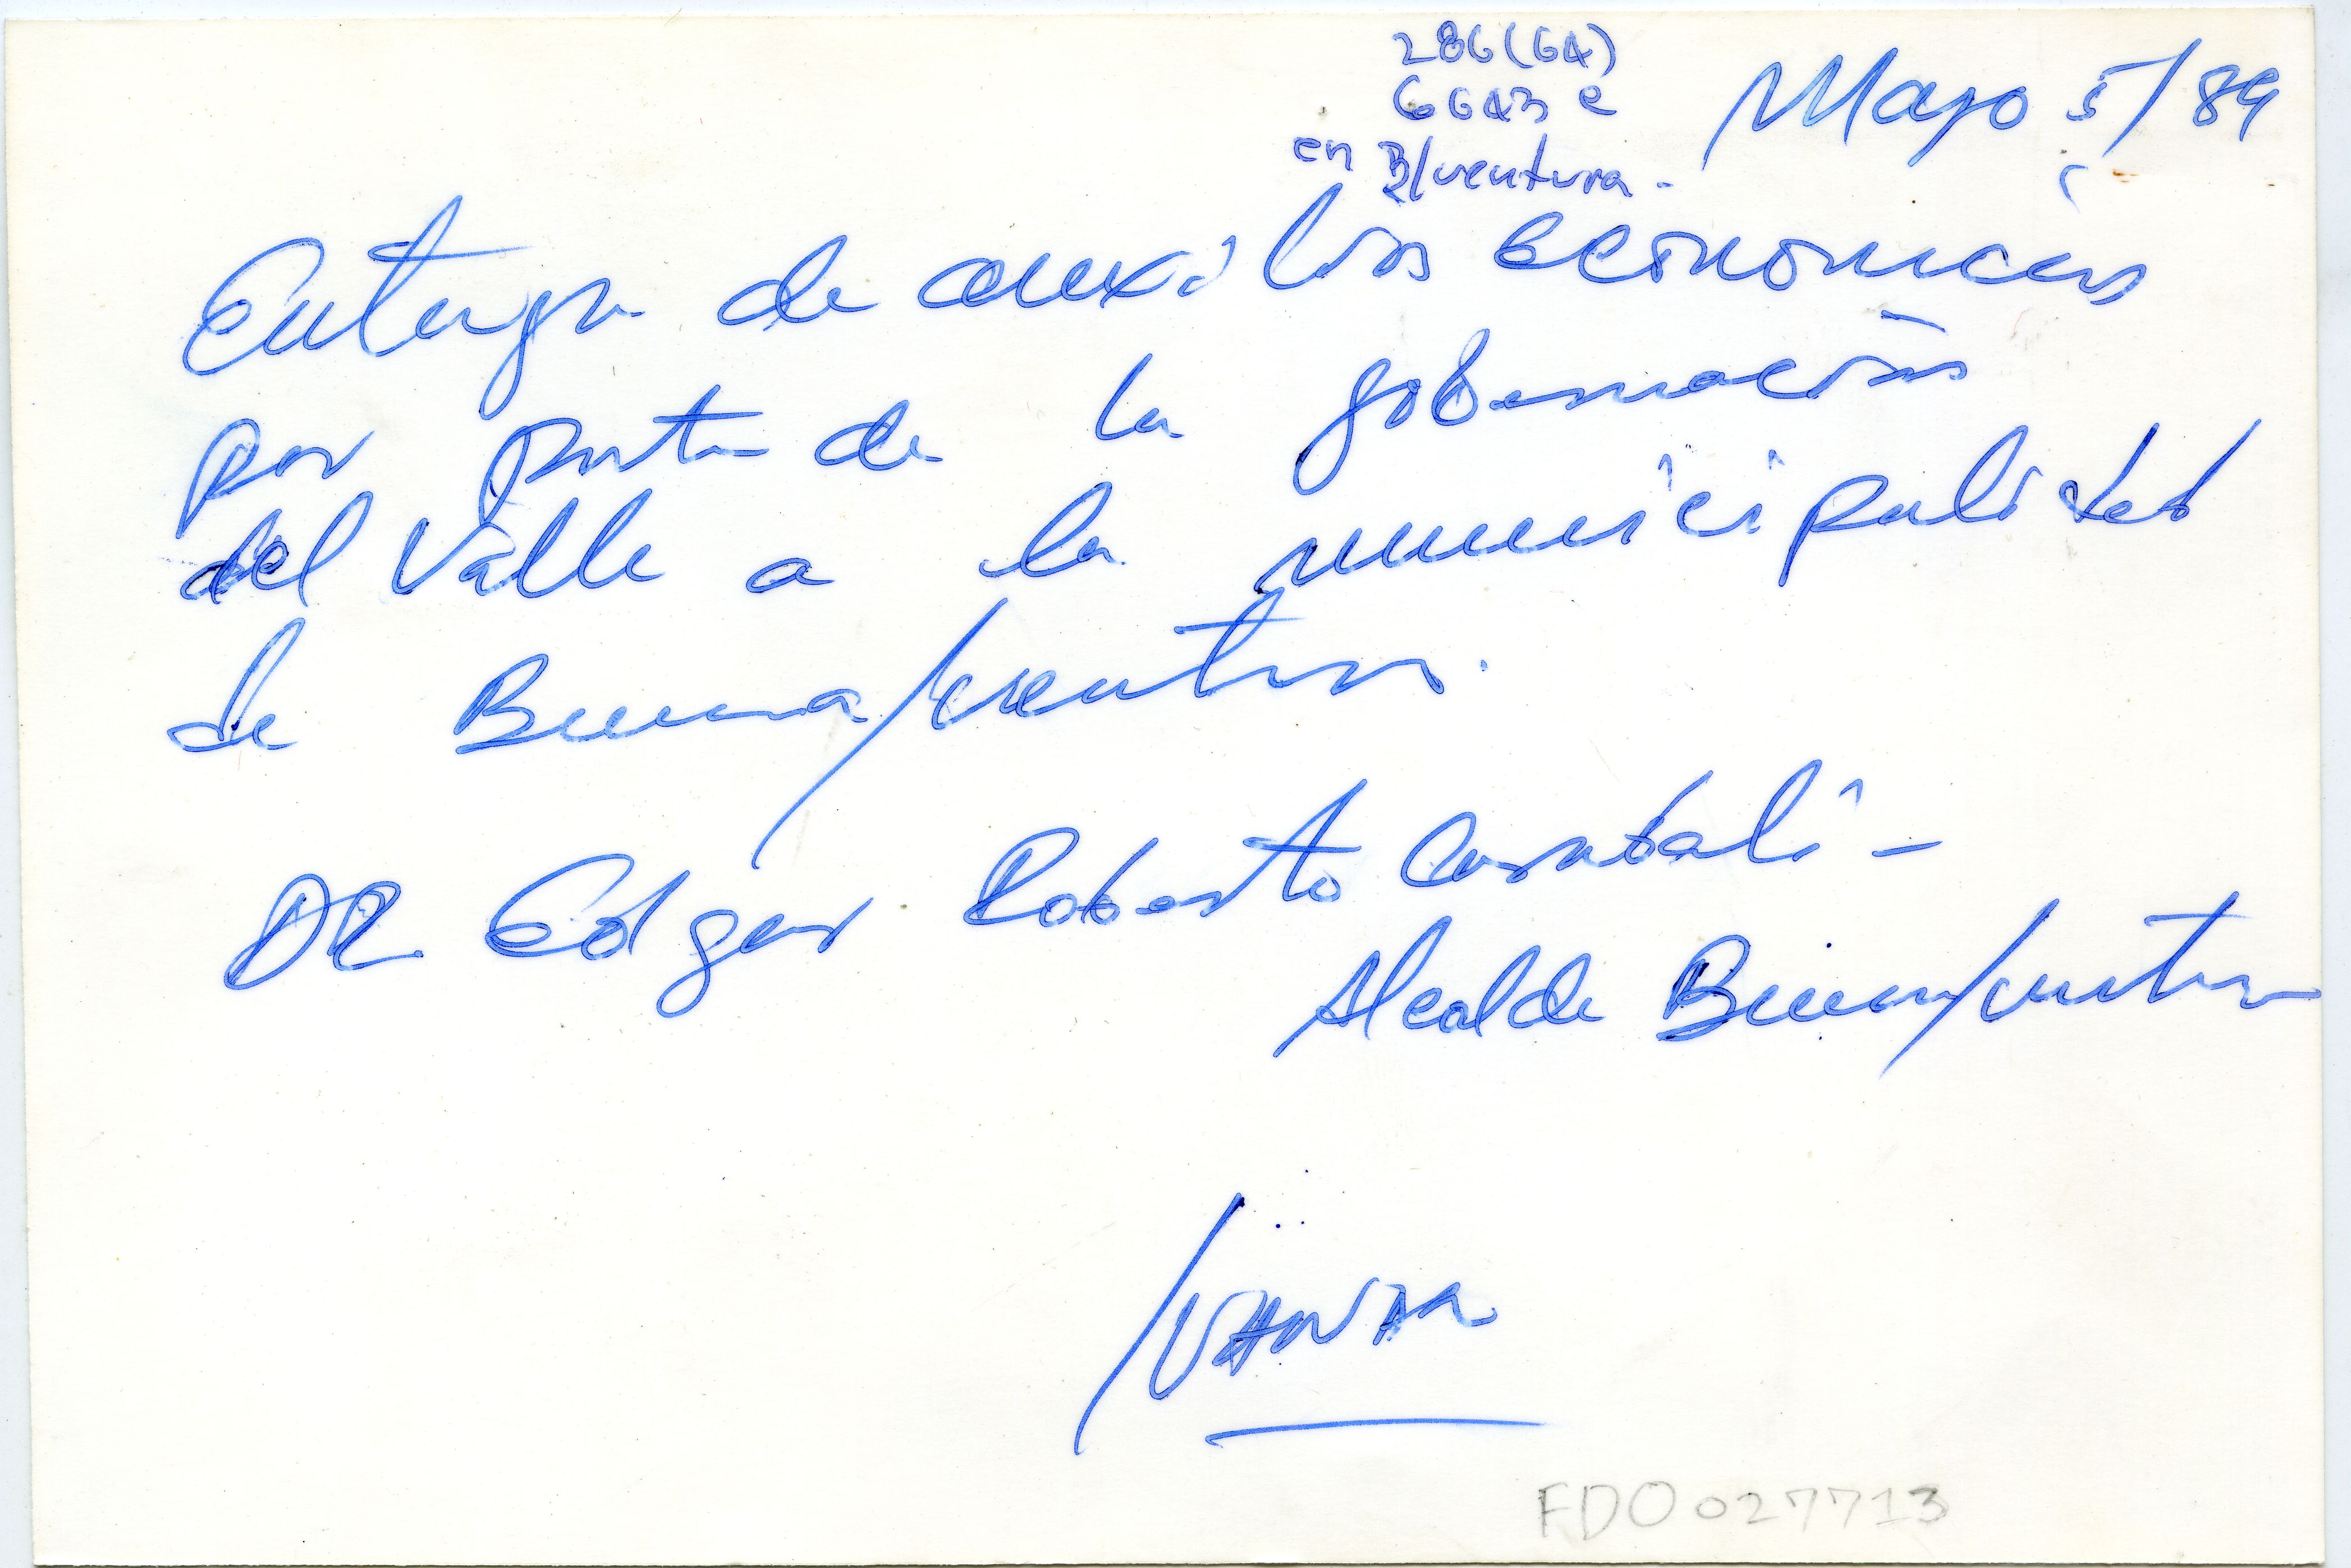 286(GA)
GGAB e
en B/ventura.
Mayo 5/89
Entrega de auxilios económicos
por parte de la gobernación
del Valle a la municipalidad
de Buena/ventura.
DR Edgar Roberto Carabalí -
Alcalde Buena/ventura
FDO027713